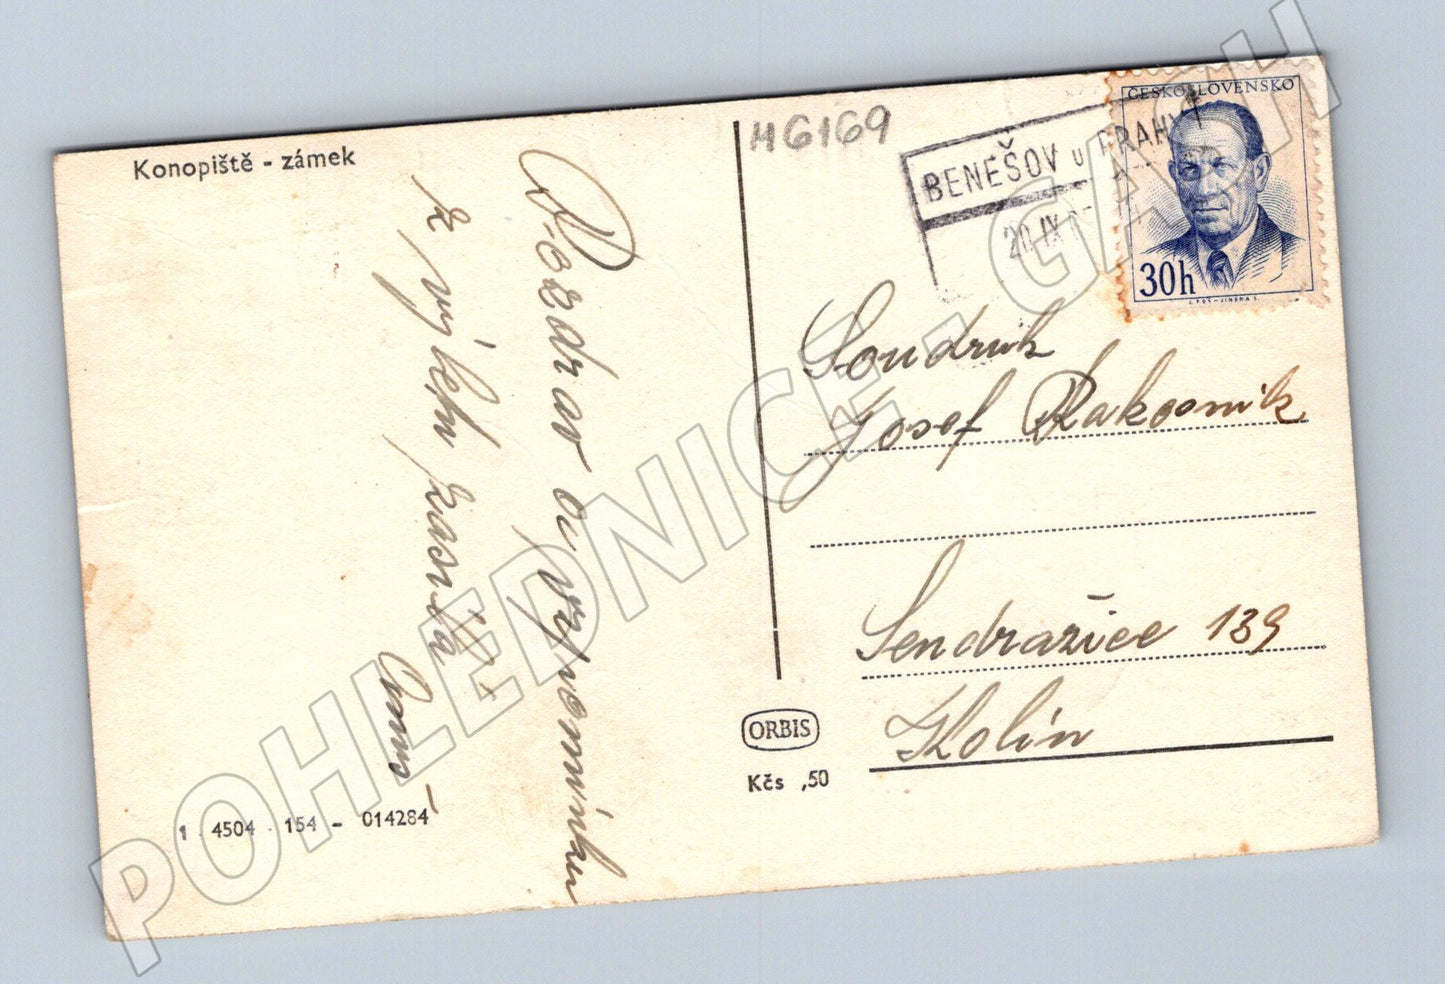 Konopiště - zámek
Pozdrav a vzpomínku
z výletu zasílá
1 . 4504 . 154 - 014284
H6169
BENEŠOV u PRAHY
20 IX
ČESKOSLOVENSKO
30h
Soudruh
Josef Rakosnik
Sendražice 139
Kolín
ORBIS
Kčs ,50
POHLEDNICE - GASH